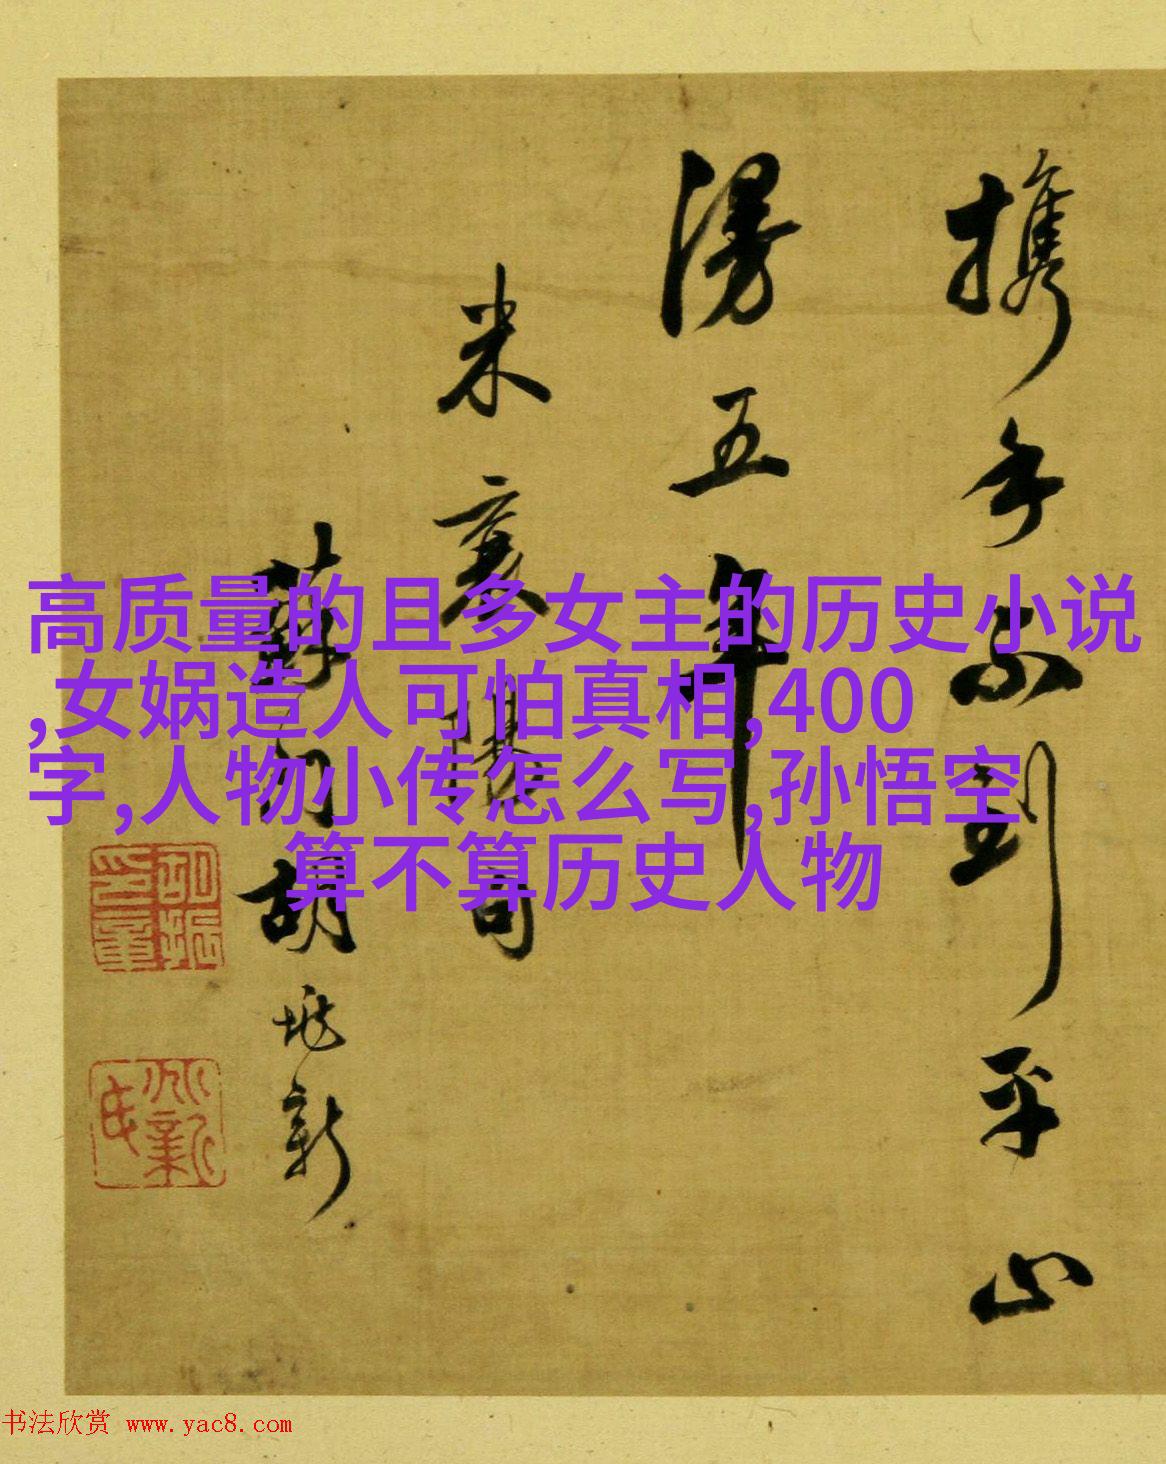 高质量的且多女主的历史小说
,女娲造人可怕真相,400
字,人物小传怎么写,孙悟空
算不算历史人物
携手不到平山
漫五年
米襄陽句
蘇門胡垗新
书法欣赏 www.yac8.com